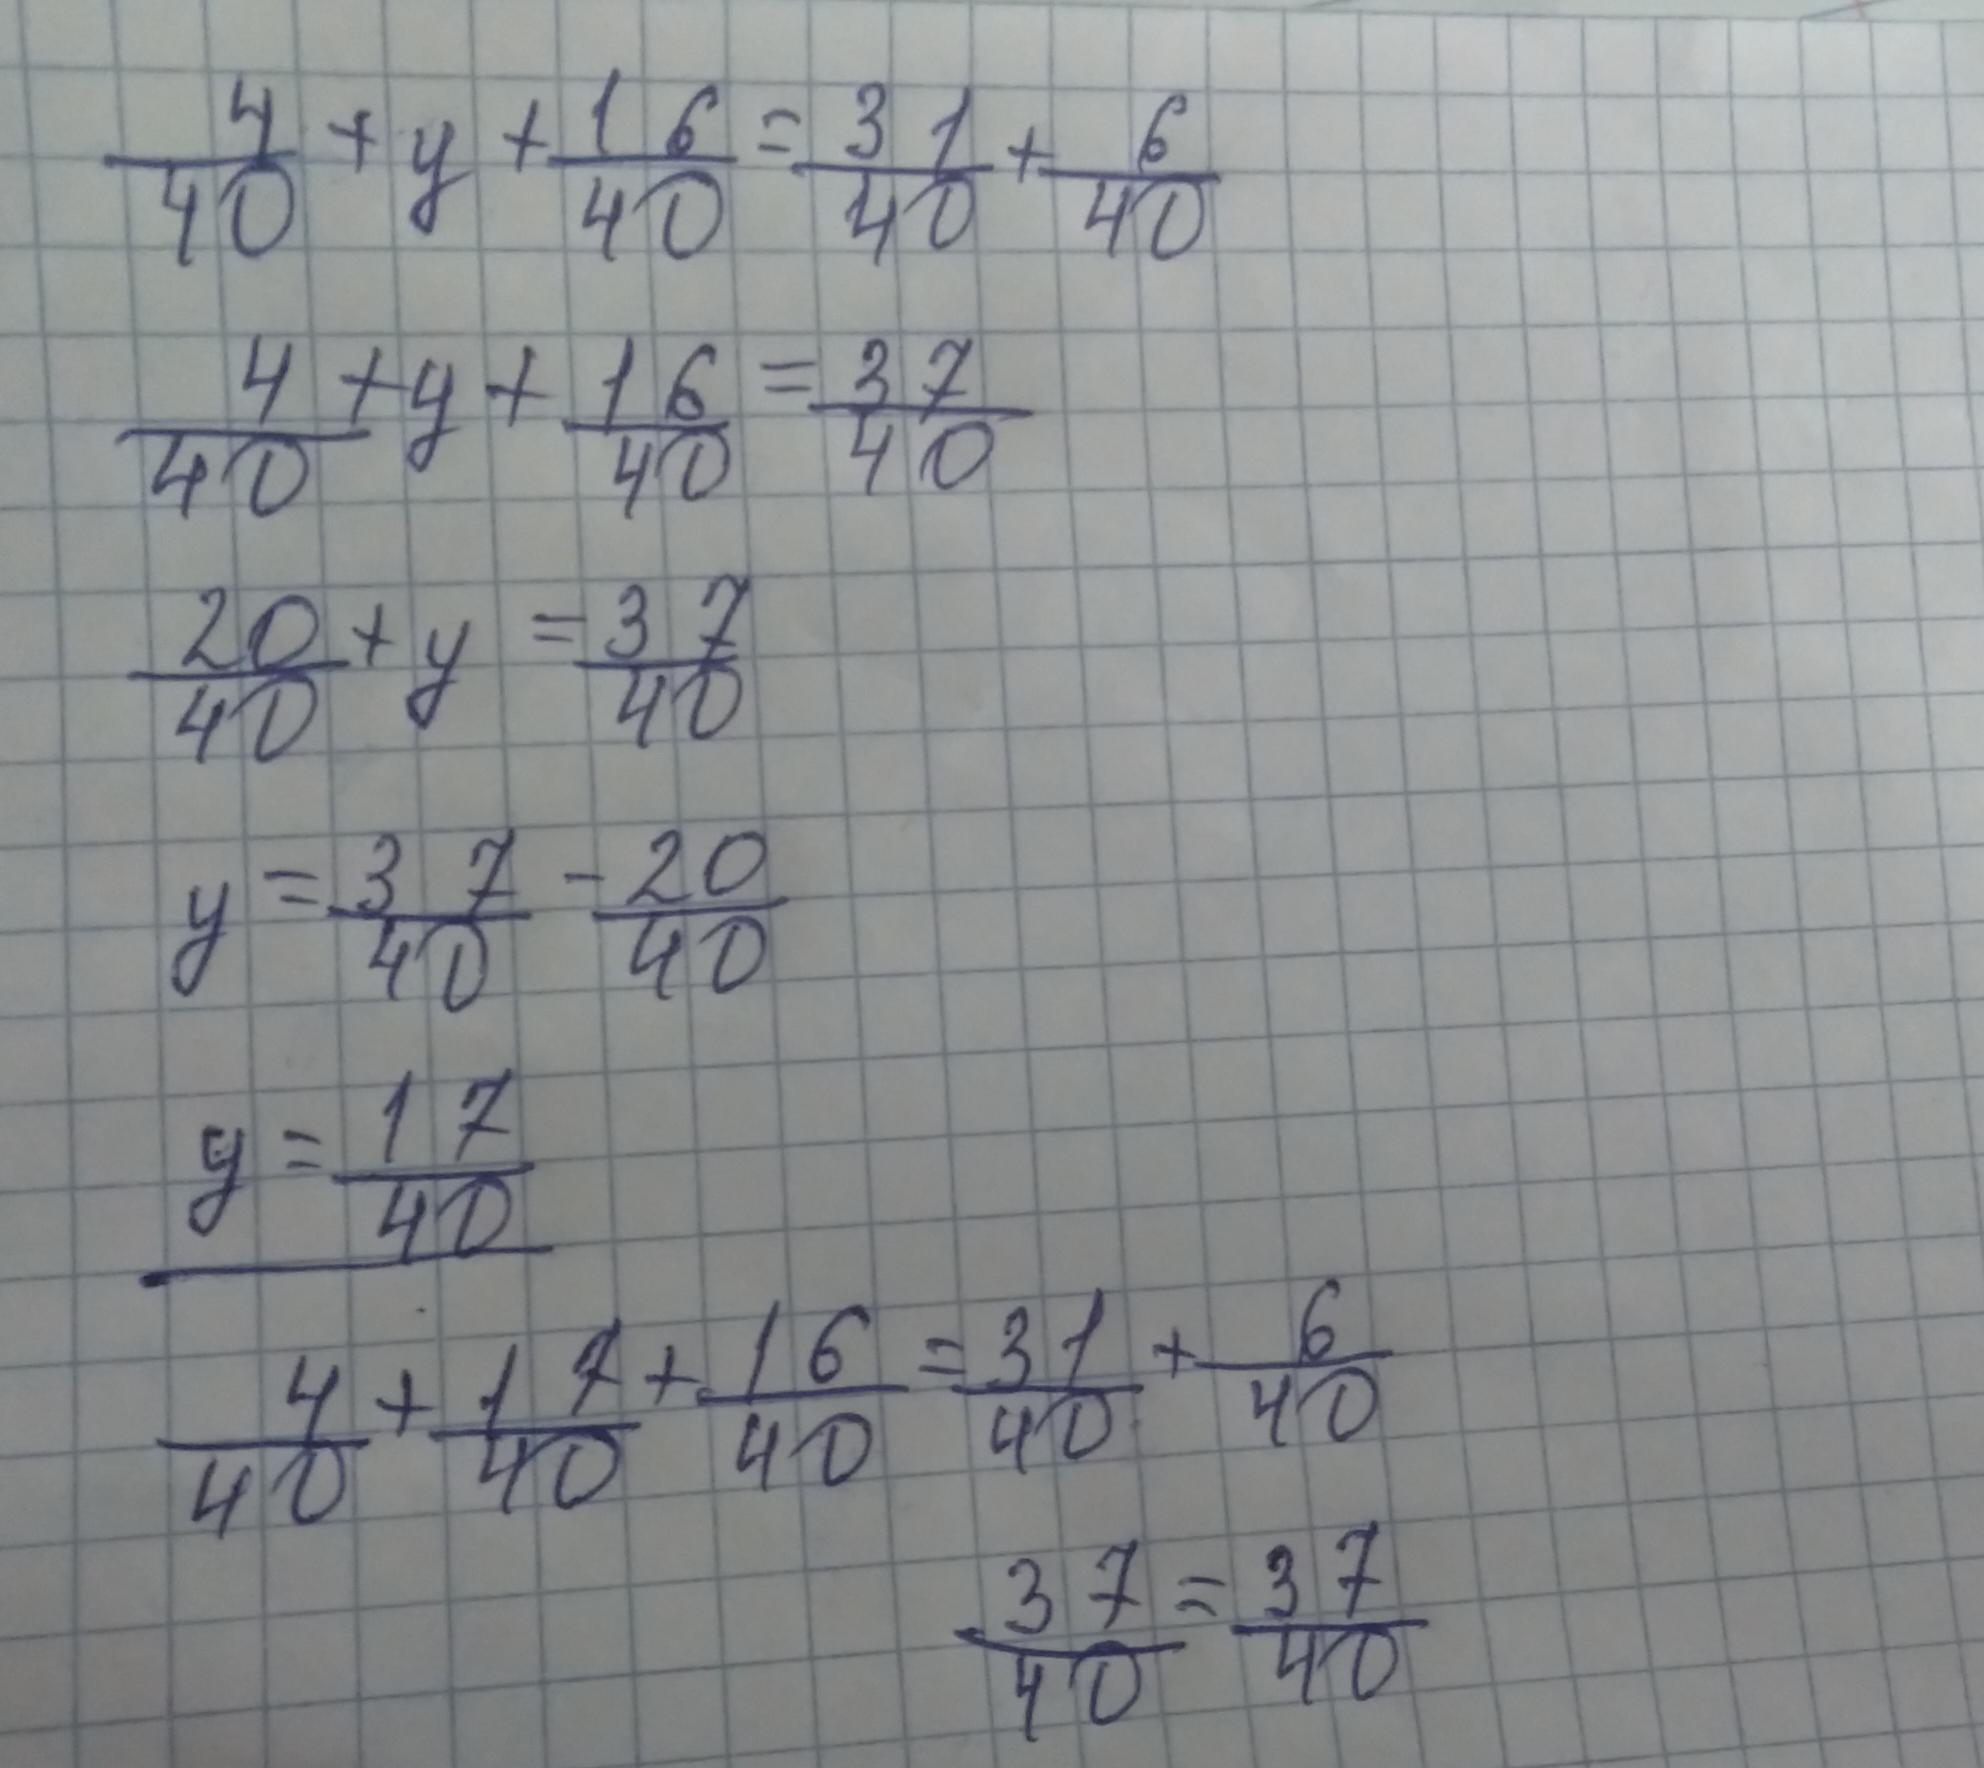 4/40 + y + 16/40 = 31/40 + 6/40
4/40 + y + 16/40 = 37/40
20/40 + y = 37/40
y = 37/40 - 20/40
y = 17/40
4/40 + 17/40 + 16/40 = 31/40 + 6/40
37/40 = 37/40